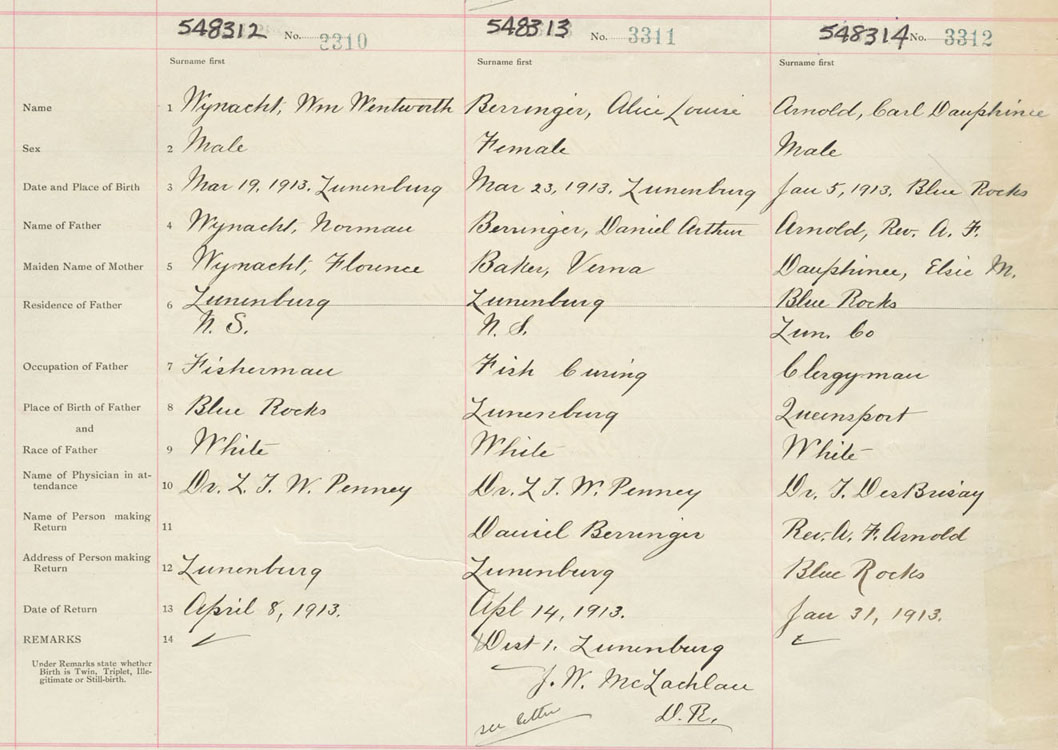 548312 No. 3310 548313 No. 3311 548314 No. 3312
Surname first Surname first Surname first
Name 1 Wynacht, Wm Wentworth Berringer, Alice Louise Arnold, Carl Dauphinee
Sex 2 Male Female Male
Date and Place of Birth 3 Mar 19, 1913, Lunenburg Mar 23, 1913, Lunenburg Jan 5, 1913, Blue Rocks
Name of Father 4 Wynacht, Norman Berringer, Daniel Arthur Arnold, Rev. A. F.
Maiden Name of Mother 5 Wynacht, Florence Baker, Verna Dauphinee, Elsie M.
Residence of Father 6 Lunenburg Lunenburg Blue Rocks
N. S. N. S. Lun. Co
Occupation of Father 7 Fisherman Fish Curing Clergyman
Place of Birth of Father 8 Blue Rocks Lunenburg Queensport
and
Race of Father 9 White White White
Name of Physician in at-
tendance 10 Dr. L T. W. Penney Dr. L T. W. Penney Dr. T. DesBrisay
Name of Person making
Return 11 Daniel Berringer Rev. A. F. Arnold
Address of Person making
Return 12 Lunenburg Lunenburg Blue Rocks
Date of Return 13 April 8, 1913. Apl 14, 1913. Jan 31, 1913.
REMARKS 14 Dist 1. Lunenburg
Under Remarks state whether
Birth is Twin, Triplet, Ille-
gitimate or Still-birth.
J. W. McLachlan
see letter D. R.